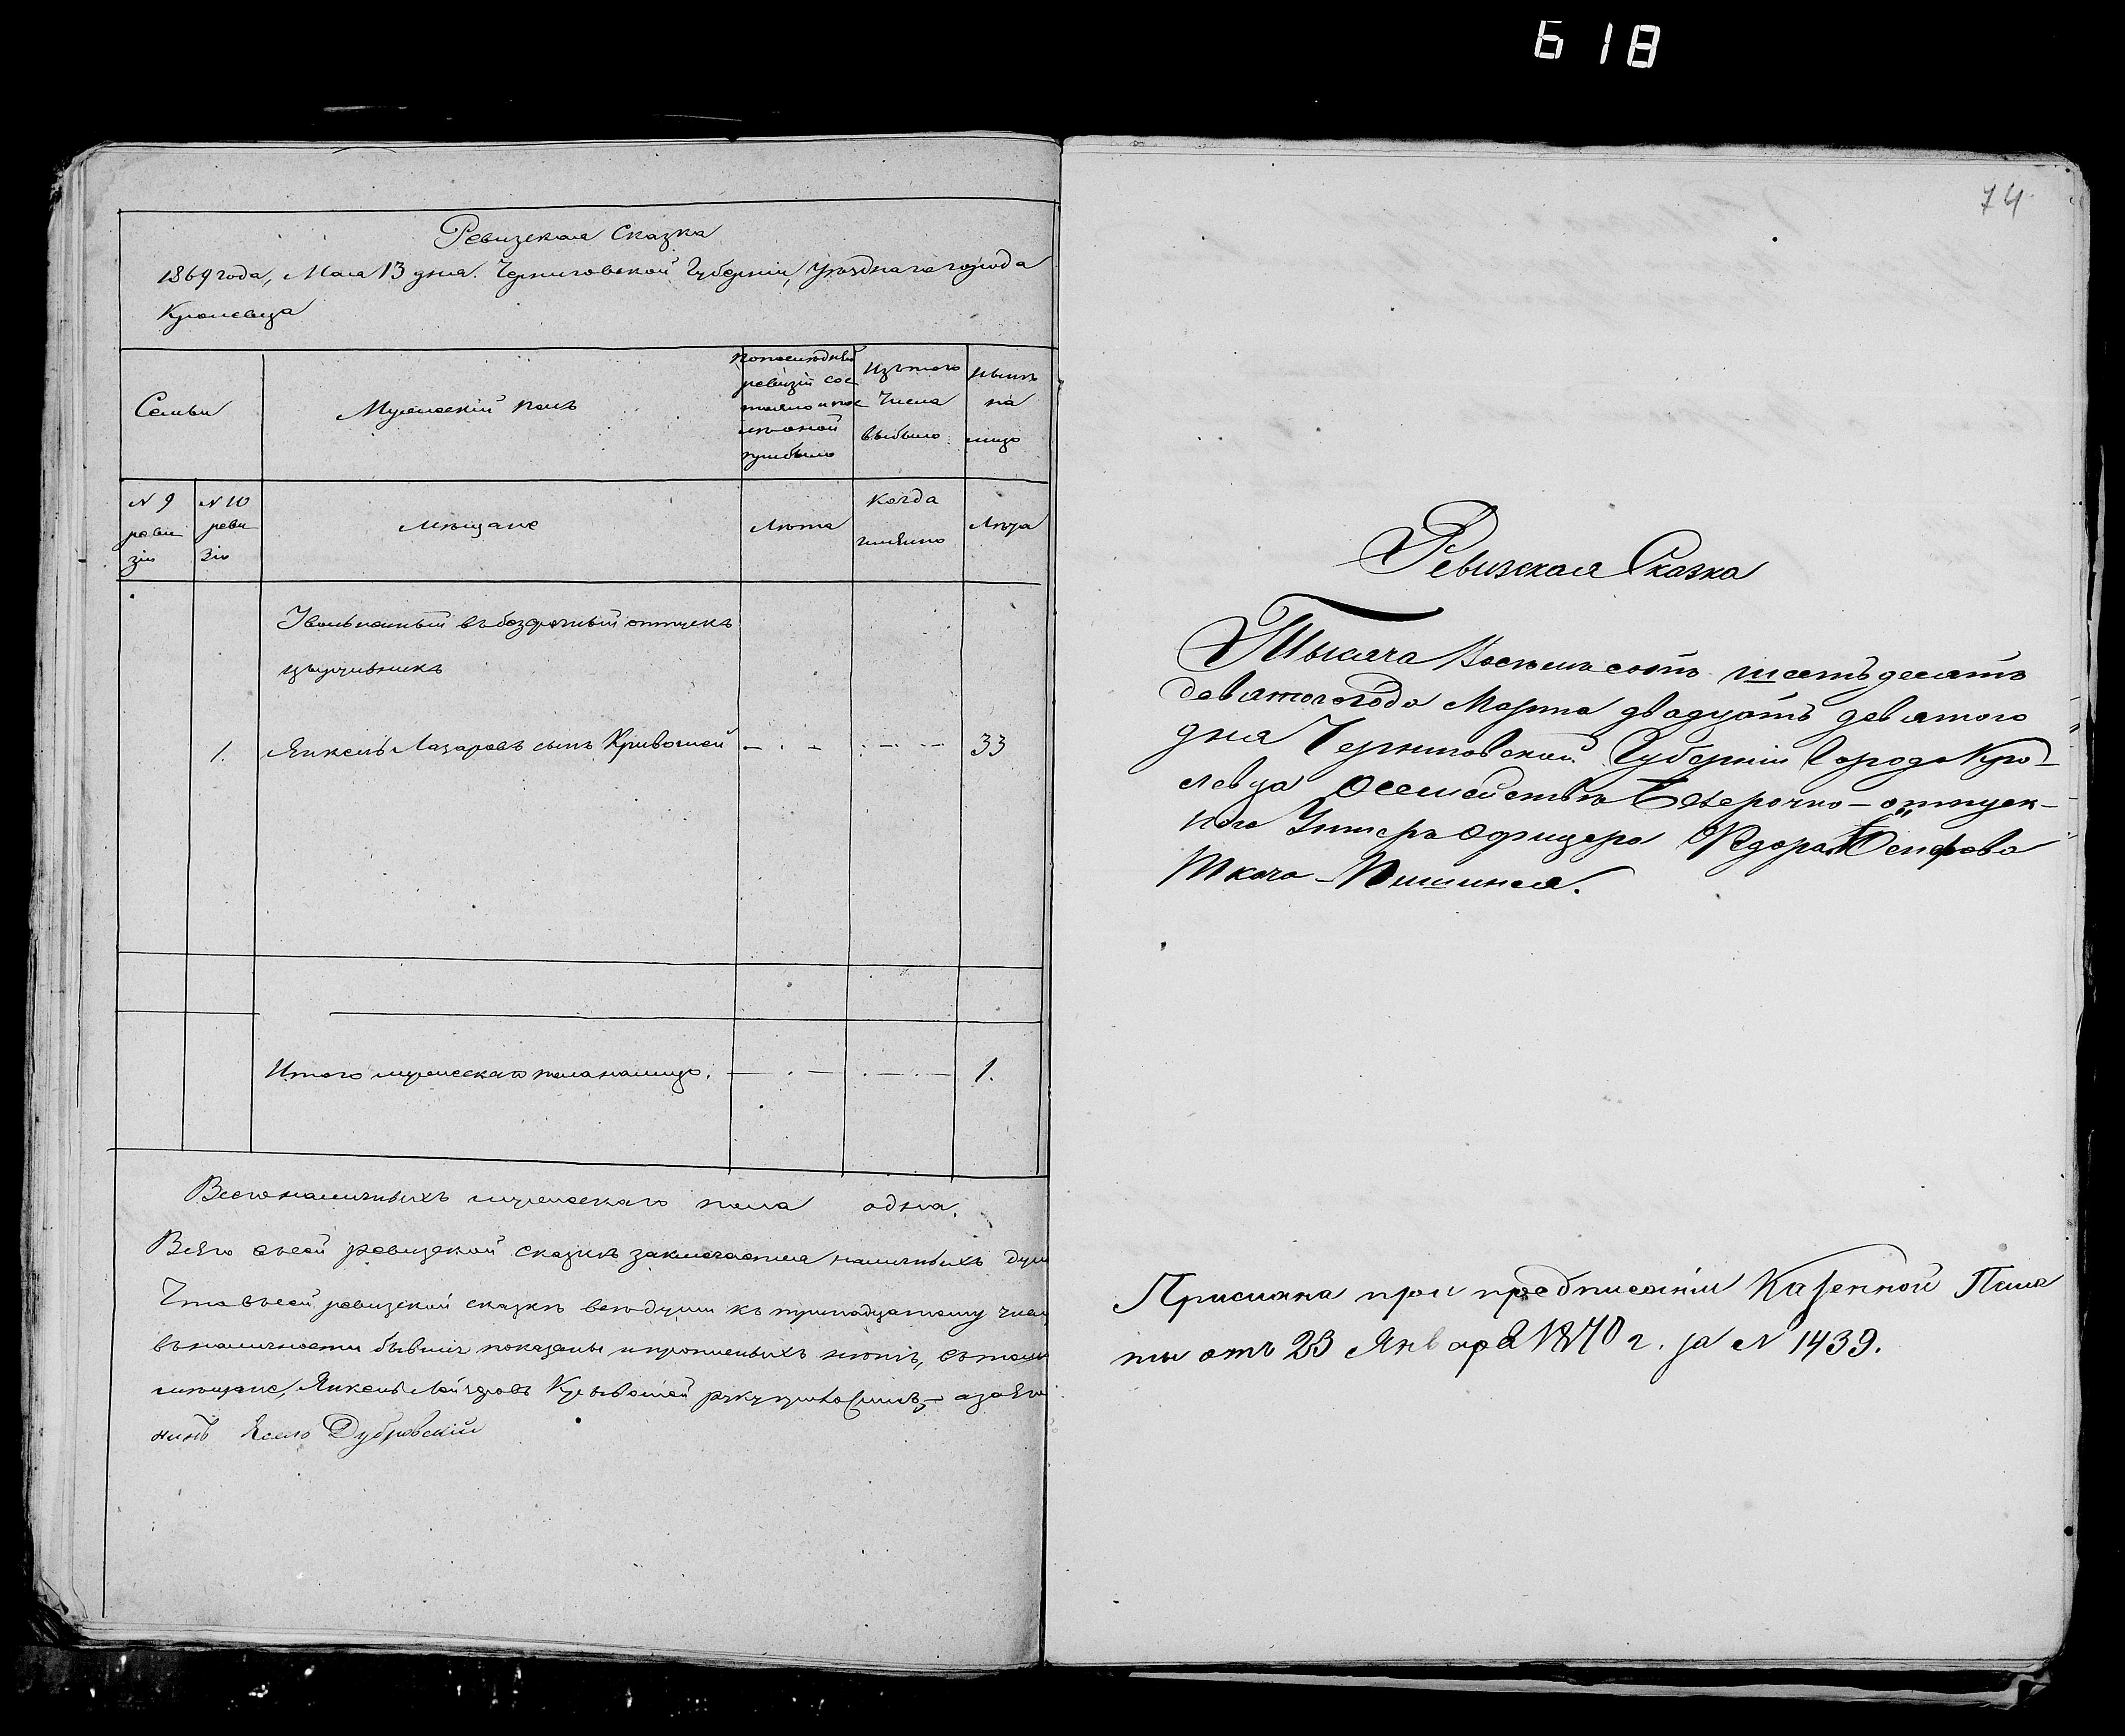 618
Ревизская Сказка
1869 года, Мая 13 дня. Черниговской Губерніи, уезднаго города
Кролевца
Семьи
Мужескій полъ
По последней
ревизіи сос
тояло и пос
ле оной
прибыло
Изъ того
числа
выбыло
Ныне
на
лицо
N 9
реви
зіи
N 10
реви
зіи
Мещане
Лета
Когда
именно
Лета
Уволенный въ безсрочный отпускъ
1. Янкель Лазаровъ сынъ Кривошей — · — · — · — 33
Итого мужескаго пола налицо. — · — · — · — 1.
Всего наличныхъ мужескаго пола одна.
Всего въ сей ревизской сказке заключается наличныхъ душ
Что въ сей ревизской сказке все души къ тринадцатому чис
въ наличности бывшіе показаны и прописныхъ нетъ, въ томъ
мещане, Янкель Кривошей руку приложилъ — а за его
Дубровскій
74
Ревизская Сказка
Тысяча Восемь сотъ шестьдесятъ
девятого года Марта двадцать девятого
дня Черниговской Губерніи Города Кро-
левца о семействе Безсрочно-отпуск-
ного Унтеръ Офицера Федора Осипова
Ткача-Пишинся.
Прислана при предписаніи Казенной Пала
ты отъ 23 Января 1870 г. за N 1439.